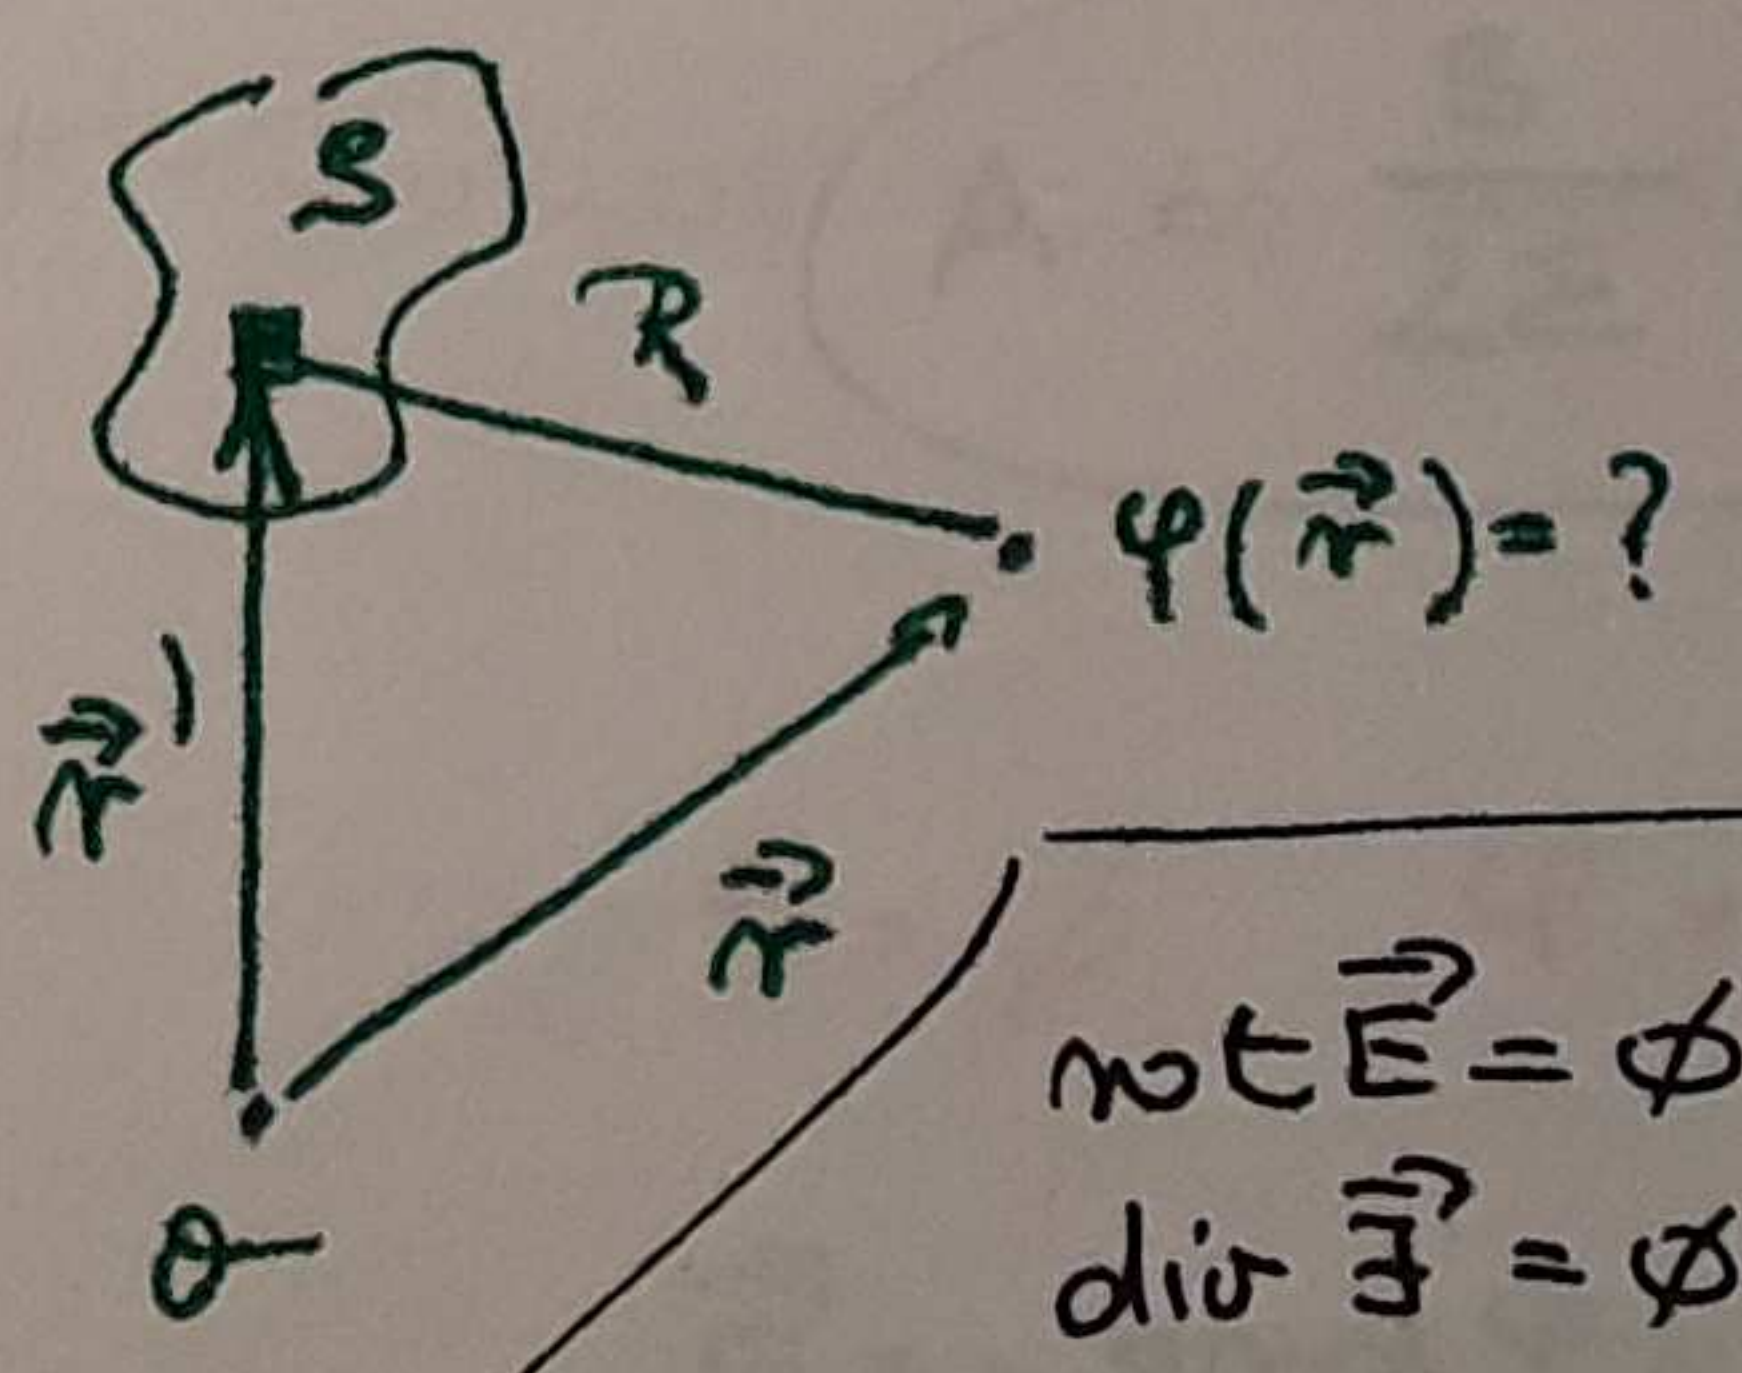 ρ
R
φ(r⃗) = ?
r⃗'
r⃗
rot E⃗ = ∅
div J⃗ = ∅
O